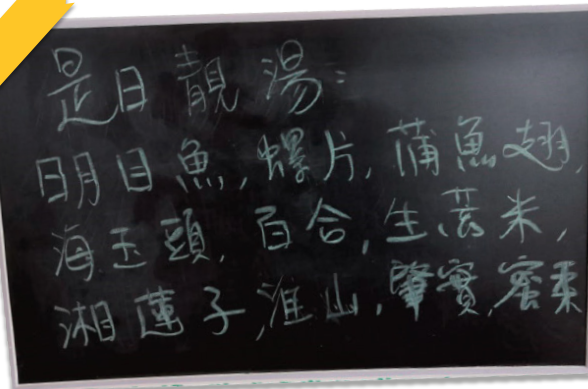 是日靚湯：
明目魚，螺片，蒲魚翅，
海玉頭，百合，生薏米，
湘蓮子，淮山，肇實，蜜棗